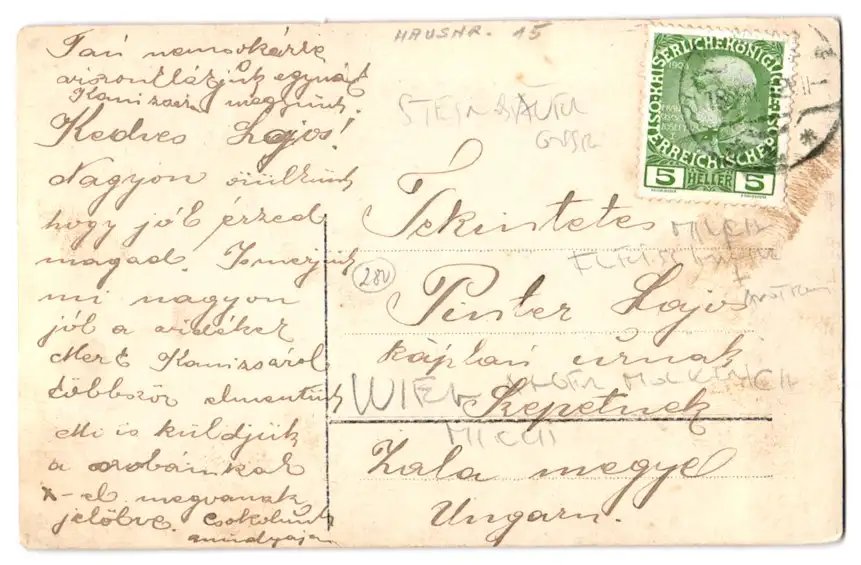 Tán nemsokára
viszontlátjuk egymást
Kanizsára megyünk.
Kedves Lajos!
Nagyon örülünk
hogy jól érzed
magad. Ismerjük
mi nagyon
jól a vidéket
Mert Kanizsáról
többször elmentünk
Mi is küldjük
a szobánkat
x-el megvannak
jelölve. Csokolunk
mindnyájan
HAUSNR. 15
KAISERLICHE KÖNIGLICHE ÖSTERREICHISCHE POST
5 HELLER 5
Tekintetes
MILCH
280
Pinter Lajos
káplán úrnak
WIEN
Szepetnek
MILCH
Zala megye
Ungarn.